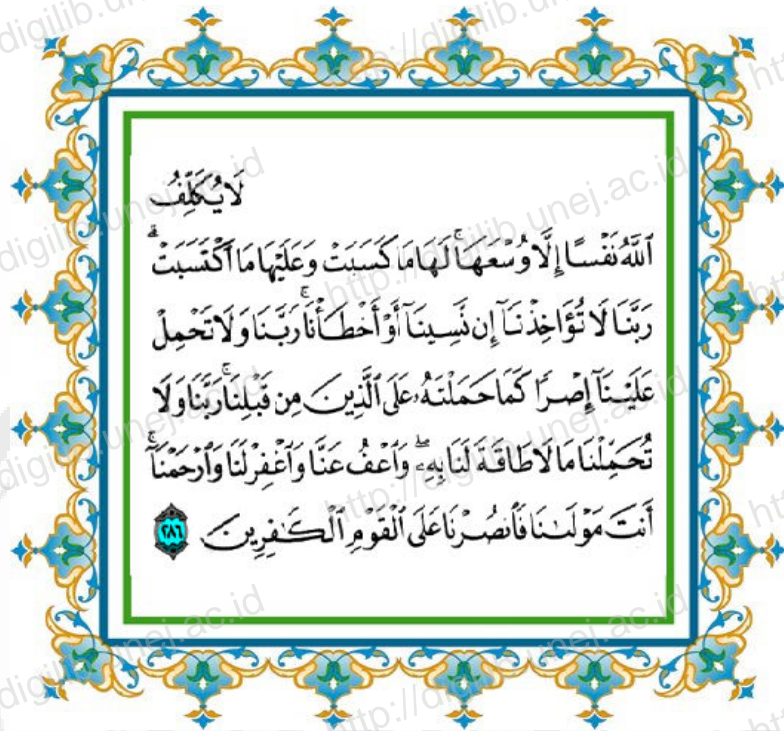 لَا يُكَلِّفُ
ٱللَّهُ نَفْسًا إِلَّا وُسْعَهَا ۚ لَهَا مَا كَسَبَتْ وَعَلَيْهَا مَا ٱكْتَسَبَتْ ۗ
رَبَّنَا لَا تُؤَاخِذْنَآ إِن نَّسِينَآ أَوْ أَخْطَأْنَا ۚ رَبَّنَا وَلَا تَحْمِلْ
عَلَيْنَآ إِصْرًا كَمَا حَمَلْتَهُۥ عَلَى ٱلَّذِينَ مِن قَبْلِنَا ۚ رَبَّنَا وَلَا
تُحَمِّلْنَا مَا لَا طَاقَةَ لَنَا بِهِۦ ۖ وَٱعْفُ عَنَّا وَٱغْفِرْ لَنَا وَٱرْحَمْنَآ ۚ
أَنتَ مَوْلَىٰنَا فَٱنصُرْنَا عَلَى ٱلْقَوْمِ ٱلْكَـٰفِرِينَ ٢٨٦
http://digilib.unej.ac.id